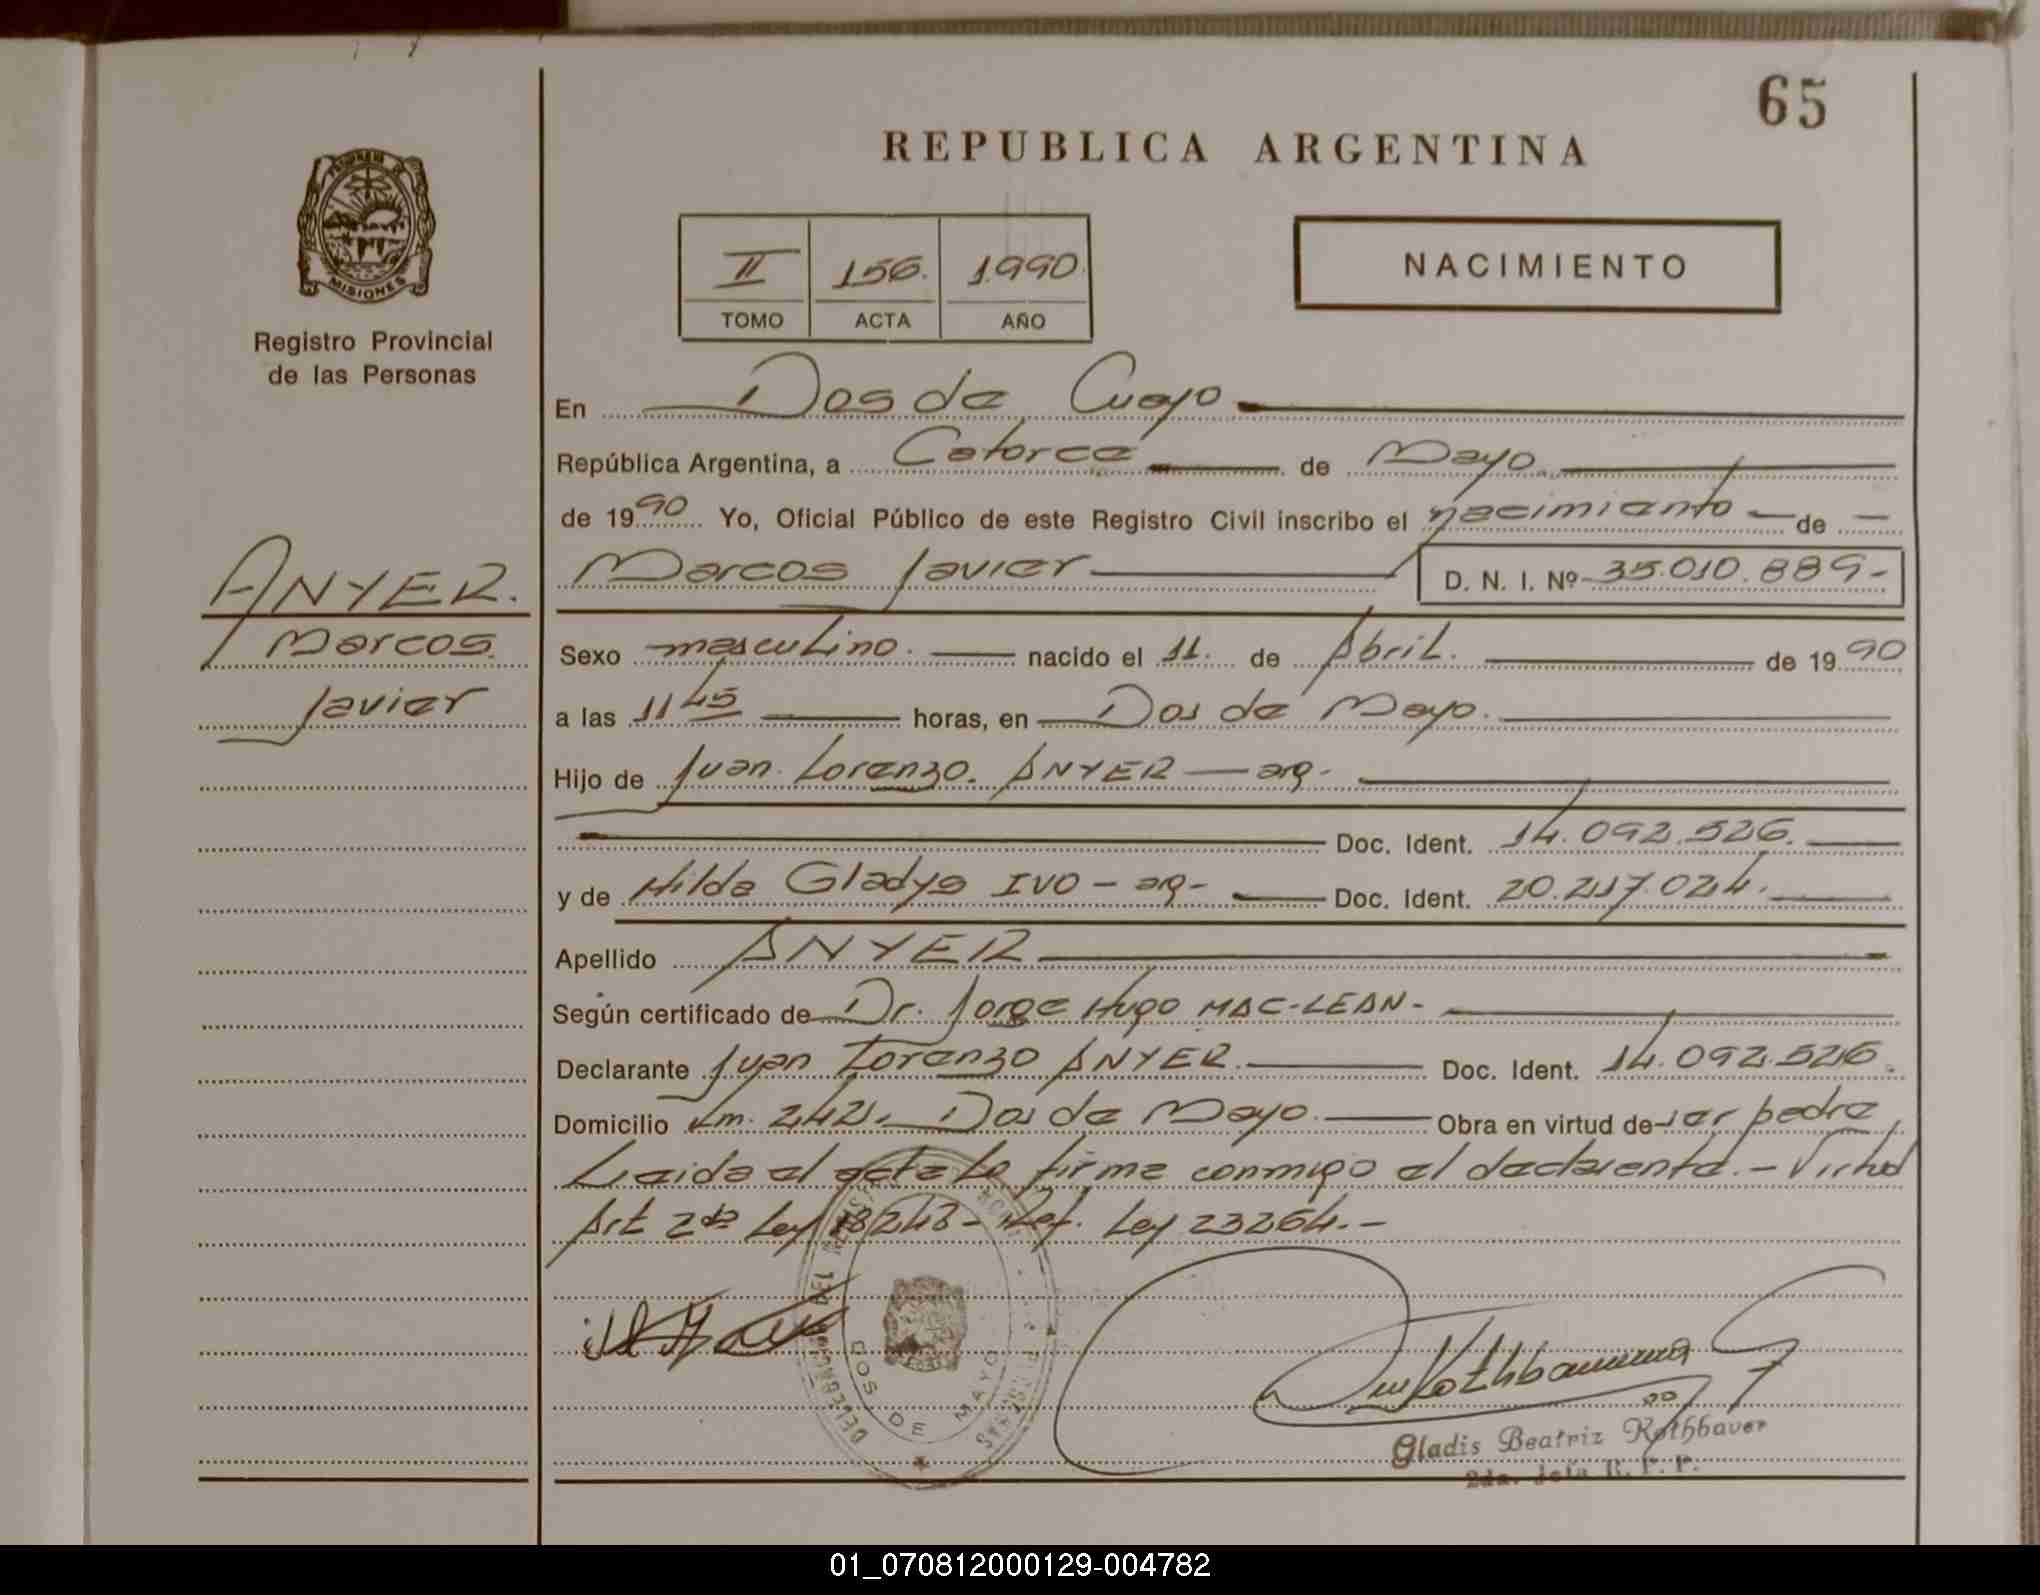 65
REPUBLICA ARGENTINA
MISIONES
Registro Provincial
de las Personas
II 156. 1.990
TOMO ACTA AÑO
NACIMIENTO
En Dos de Mayo
República Argentina, a Catorce de Mayo
de 1990 Yo, Oficial Público de este Registro Civil inscribo el nacimiento de
Marcos Javier D. N. I. Nº 35.010.889-
ANYER.
Marcos
Javier
Sexo masculino. nacido el 11. de Abril. de 1990
a las 11 45 horas, en Dos de Mayo.
Hijo de Juan Lorenzo. ANYER — arg-
Doc. Ident. 14.092.526.
y de Hilda Gladys IVO - arg- Doc. Ident. 20.217.024.
Apellido ANYER
Según certificado de Dr. Jorge Hugo MAC-LEAN-
Declarante Juan Lorenzo ANYER. Doc. Ident. 14.092.526.
Domicilio Km. 242. Dos de Mayo. Obra en virtud de ser padre
Leida el acta la firma conmigo el declarante.- Virtud
Art 2do Ley 18248- Ref. Ley 23264.-
DOS DE MAYO
Rothbauer
Gladis Beatriz Rothbauer
2da. Jefa R. P. P.
01_070812000129-004782